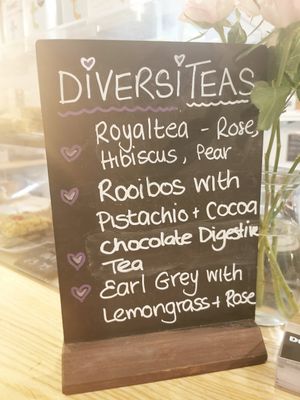 DIVERSITEAS
Royaltea - Rose,
Hibiscus, Pear
Rooibos with
Pistachio + Cocoa
Chocolate Digestive
Tea
Earl Grey with
Lemongrass + Rose